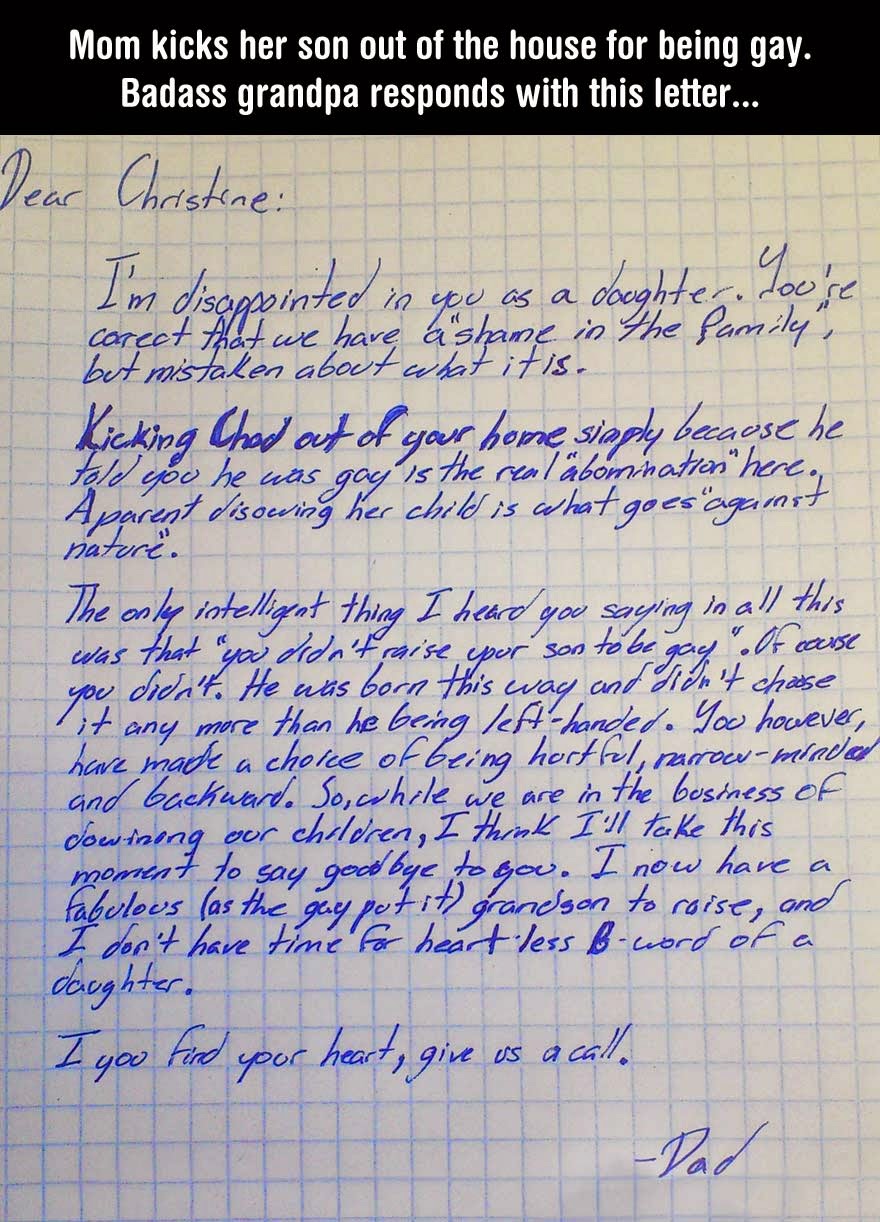 Mom kicks her son out of the house for being gay.
Badass grandpa responds with this letter...
Dear Christine:
I'm disappointed in you as a daughter. You're
corect that we have a "shame in the family",
but mistaken about what it is.
Kicking Chad out of your home simply because he
told you he was gay is the real "abomination" here.
A parent disowing her child is what goes "against
nature".
The only intelligent thing I heard you saying in all this
was that "you didn't raise your son to be gay". Of course
you didn't. He was born this way and didn't choose
it any more than he being left-handed. You however,
have made a choice of being hurtful, narrow-minded
and backward. So, while we are in the business of
dowinong our children, I think I'll take this
moment to say goodbye to you. I now have a
fabulous (as the gay put it) grandson to raise, and
I don't have time for heart-less B-word of a
daughter.
I you find your heart, give us a call.
-Dad